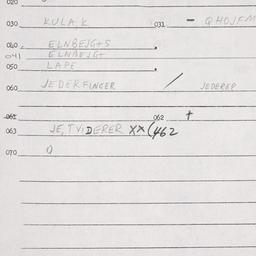 020
030 KULAK 031 - QHOJFM
040 ELNBEJGTS
041 ELNBEJGT
050 LAPE
060 JEDERFINGER / JEDERER
061 062 +
063 JE,TVIDERER XX (462
070 0